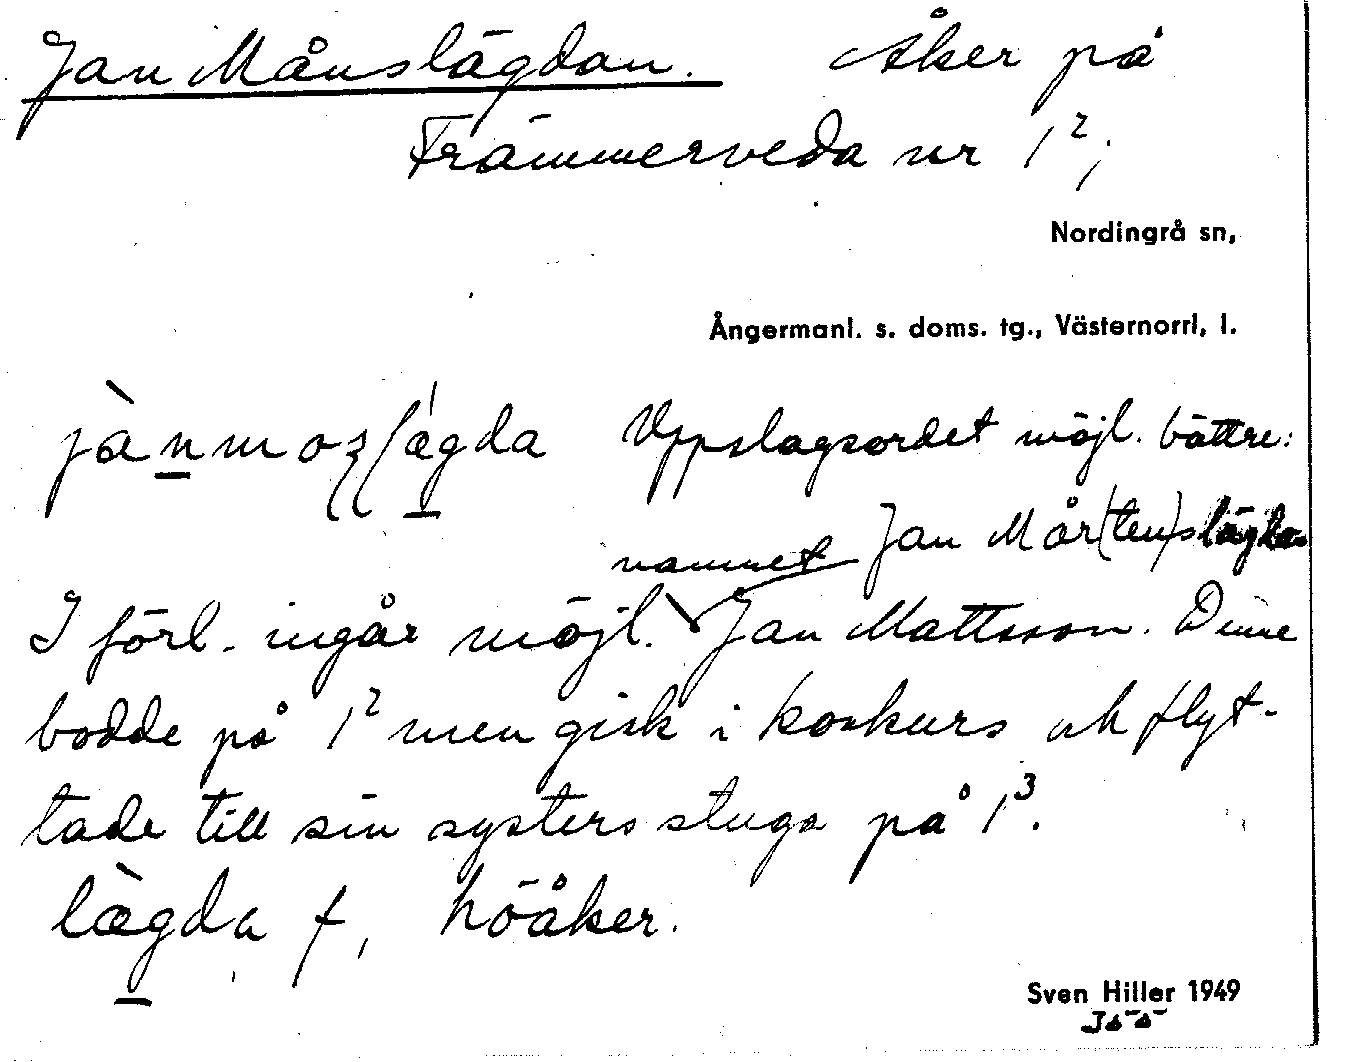 Jan Månslägdan. Åker på
Främmerveda nr 1²;
Nordingrå sn,
Ångermanl. s. doms. tg., Västernorrl. l.
Uppslagsordet möjl. bättre:
Jan Mår(ten)slägdan
namnet
I förl. ingår möjl. Jan Mattsson. Denne
bodde på 1² men gick i konkurs och flyt-
tade till sin systers stuga på 1³.
lägda f, höåker.
Sven Hiller 1949